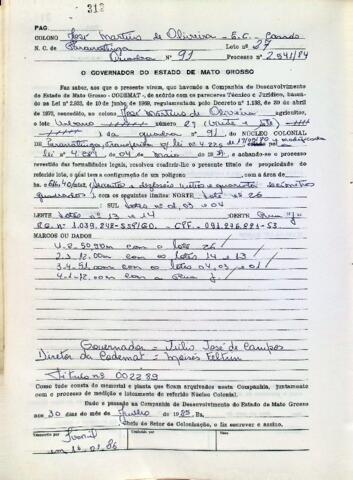 312
PAG.
COLONO José Martins de Oliveira - E.C. Casado
N. C. de Paranatinga Lote nº 27
Quadra nº 91 Processo nº 2.541/84
O GOVERNADOR DO ESTADO DE MATO GROSSO
Faz saber, aos que o presente virem, que havendo a Companhia de Desenvolvimento
do Estado de Mato Grosso - CODEMAT -, de acôrdo com os pareceres Técnico e Jurídico, basea-
do na Lei nº de 10 de junho de 1969, regulamentada pelo Decreto nº de 29 de abril
de 1972, concedido, ao colono José Martins de Oliveira agricultor,
o lote urbano número 27 (vinte e sete)
da quadra nº 91, do NÚCLEO COLONIAL
de Paranatinga,
lei nº de 04 de maio de e, achando-se o processo
revestido das formalidades legais, resolve conferir-lhe o presente título de propriedade do
referido lote, o qual tem a configuração de um polígono com a área de
quadrados) com os seguintes limites: NORTE lote nº 26
SUL lotes nº 01, 03 e 04
LESTE lotes nº 13 e 14 OESTE Rua "J"
MARCOS OU DADOS
com o lote 26
2.3-12.00m com os lotes 14 e 13
com os lotes 04, 03 e 01
4.1-12.00m com a Rua J.
Governador = Júlio José de Campos
Diretor da Codemat = Moisés Feltrin
Título nº 002289
Como tudo consta do memorial e planta que ficam arquivados nesta Companhia, juntamente
com o processo de medição e loteamento do referido Núcleo Colonial.
Dado e passado na Companhia de Desenvolvimento do Estado de Mato Grosso
aos 30 dias do mês de de 1985. Eu,
Chefe do Setor de Colonização, o fiz escrever e assino.